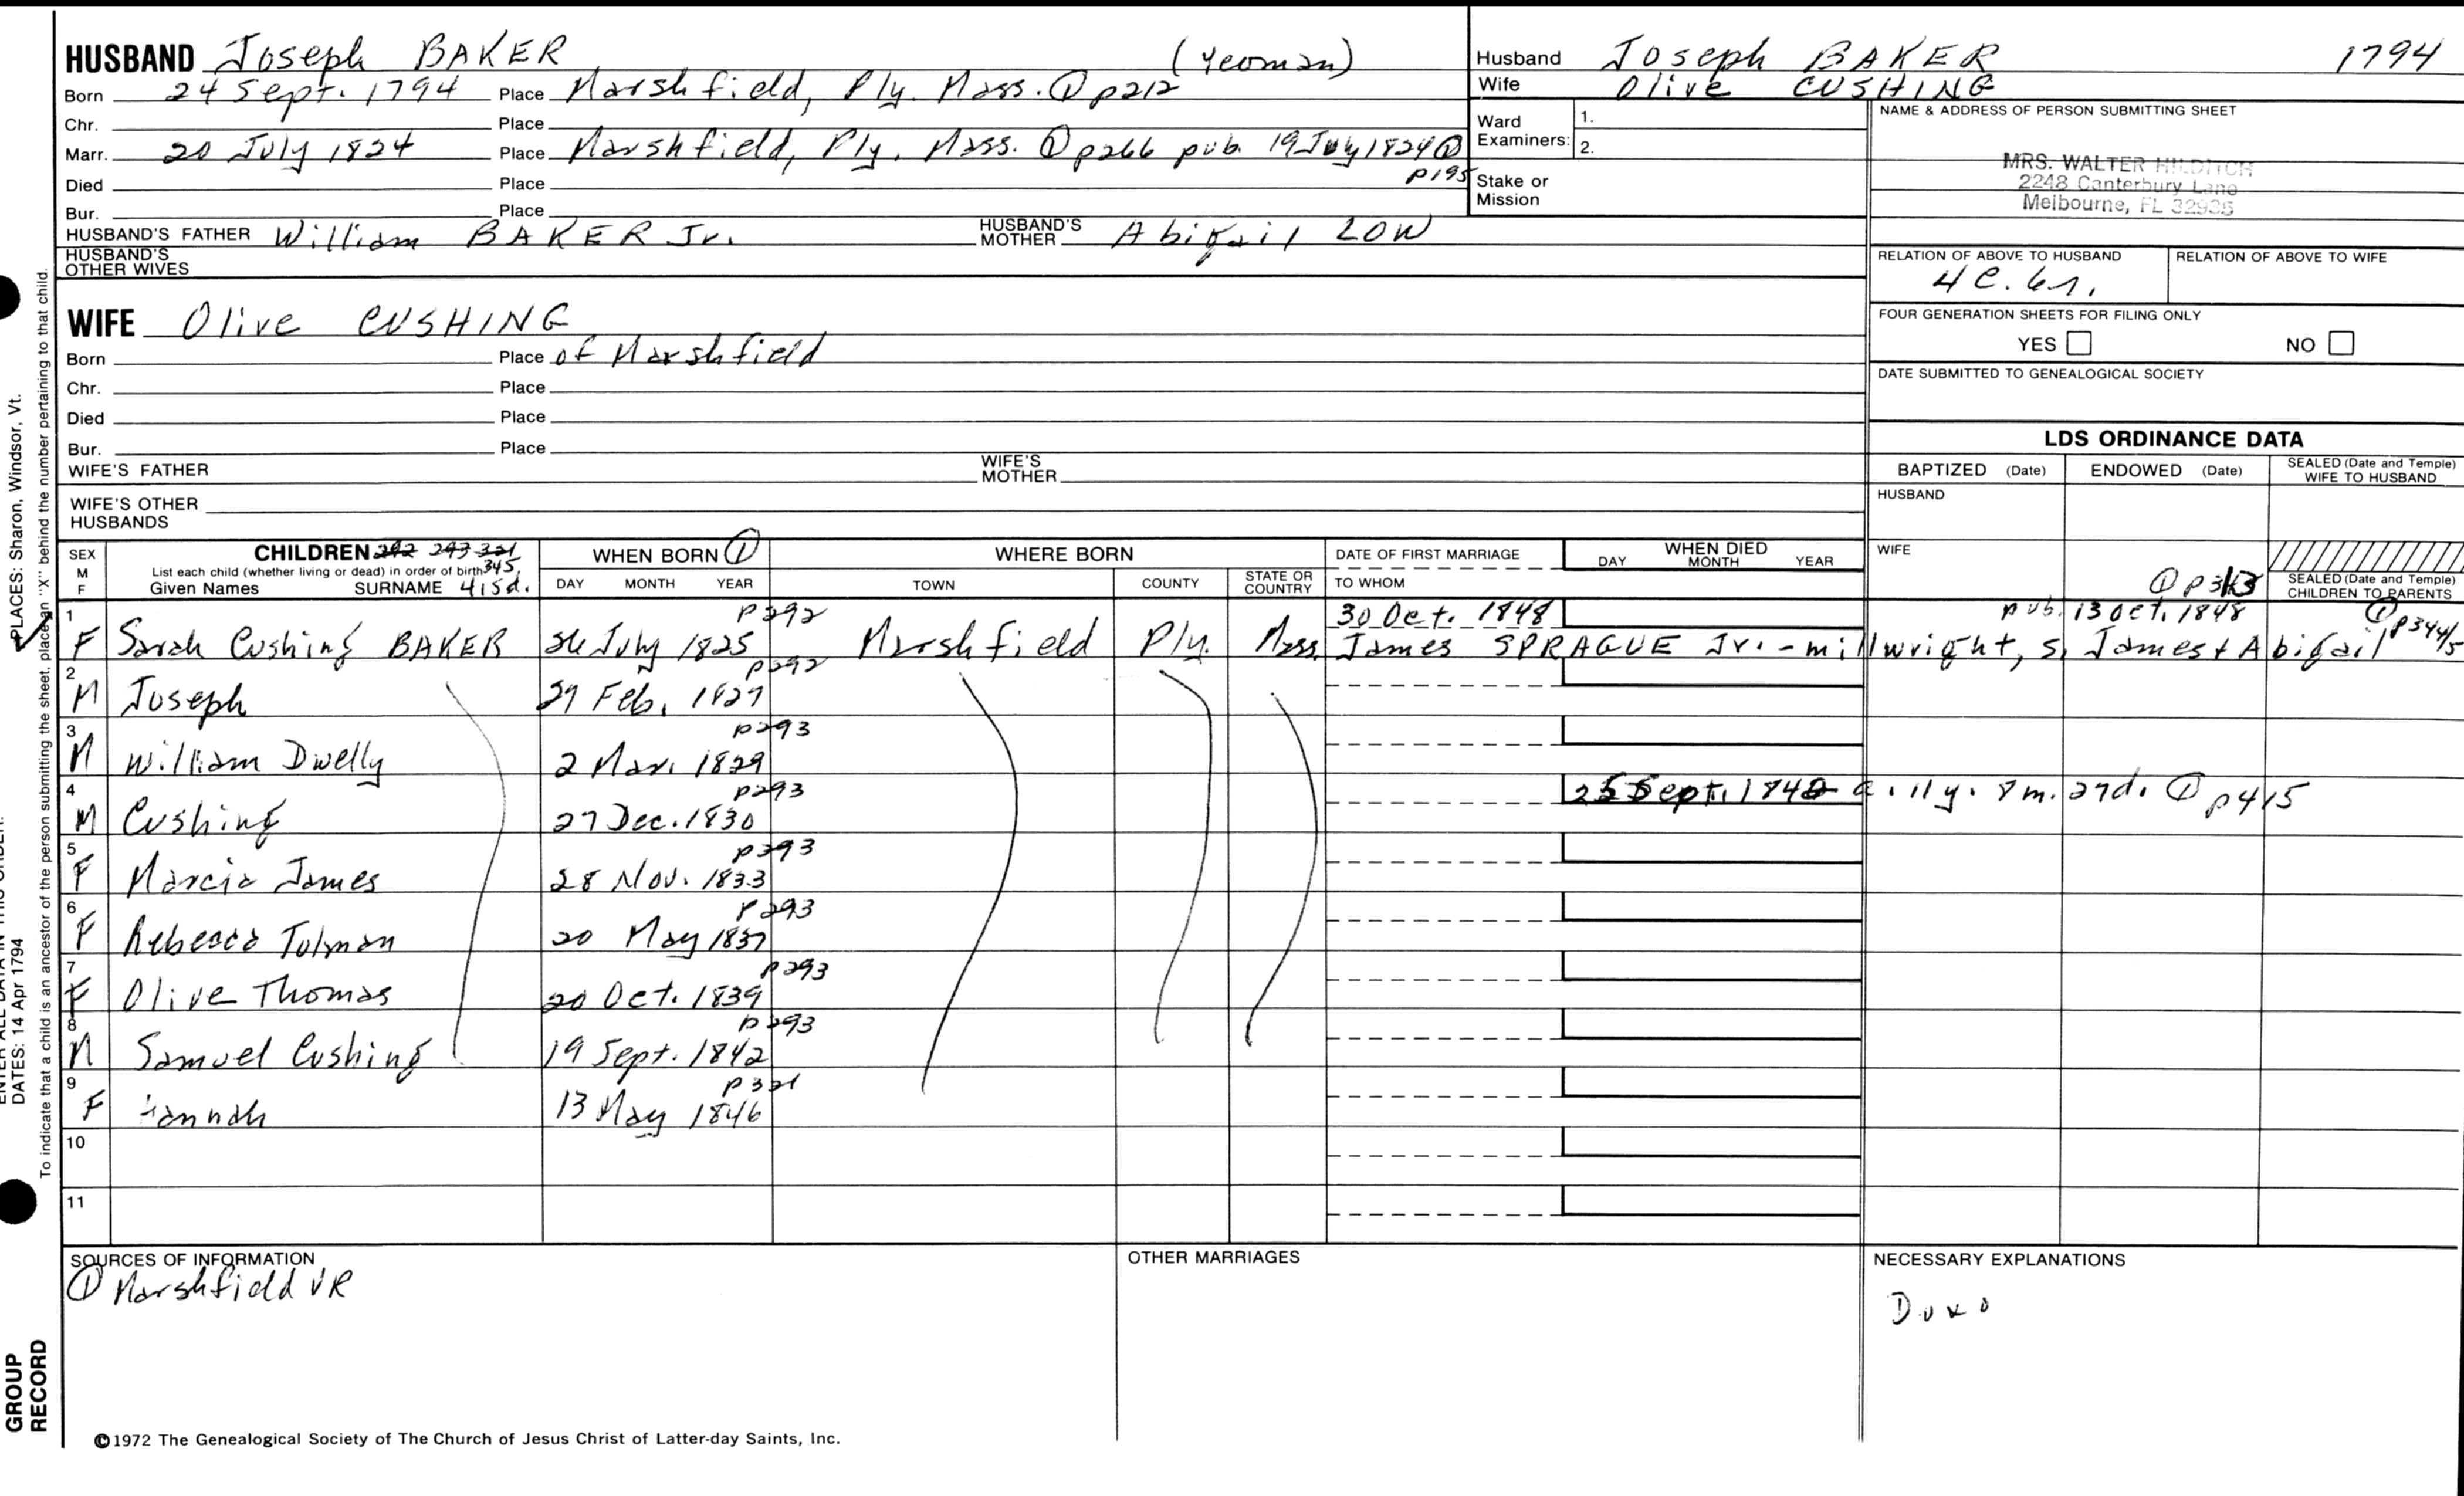 HUSBAND Joseph BAKER (Yeoman)
Born 24 Sept. 1794 Place Marshfield, Ply. Mass. ① p212
Chr. Place
Marr. 20 July 1824 Place Marshfield, Ply. Mass. ① p266 pub. 19 July 1824 ①
p195
Died Place
Bur. Place
HUSBAND'S FATHER William BAKER Jr. HUSBAND'S MOTHER Abigail LOW
HUSBAND'S OTHER WIVES
Husband Joseph BAKER 1794
Wife Olive CUSHING
Ward Examiners: 1.
2.
Stake or Mission
NAME & ADDRESS OF PERSON SUBMITTING SHEET
MRS. WALTER HILDITCH
2248 Canterbury Lane
Melbourne, FL 32935
RELATION OF ABOVE TO HUSBAND RELATION OF ABOVE TO WIFE
4 C. 6r.
FOUR GENERATION SHEETS FOR FILING ONLY
YES NO
DATE SUBMITTED TO GENEALOGICAL SOCIETY
WIFE Olive CUSHING
Born Place of Marshfield
Chr. Place
Died Place
Bur. Place
WIFE'S FATHER WIFE'S MOTHER
WIFE'S OTHER HUSBANDS
LDS ORDINANCE DATA
BAPTIZED (Date) ENDOWED (Date) SEALED (Date and Temple) WIFE TO HUSBAND
HUSBAND
WIFE
SEALED (Date and Temple) CHILDREN TO PARENTS
SEX M F
CHILDREN 292 293 321
List each child (whether living or dead) in order of birth 345,
Given Names SURNAME 415d.
WHEN BORN ①
DAY MONTH YEAR
WHERE BORN
TOWN COUNTY STATE OR COUNTRY
DATE OF FIRST MARRIAGE
TO WHOM
WHEN DIED
DAY MONTH YEAR
1 p292 30 Oct. 1848 pub. 13 Oct. 1848 ① p344/5
F Sarah Cushing BAKER July 1825 Marshfield Ply. Mass. James SPRAGUE Jr. - millwright, s. James & Abigail
2 p292
M Joseph Feb. 1827
3 p293
M William Dwelly 2 Mar. 1829
4 p293 Sept. 1842 a. 11y. 8m. 27d. ① p415
M Cushing 27 Dec. 1830
5 p293
F Marcia James 28 Nov. 1833
6 p293
F Rebecca Tolman 20 May 1837
7 p293
F Olive Thomas 20 Oct. 1839
8 p293
M Samuel Cushing 19 Sept. 1842
9 p321
F Hannah 13 May 1846
10
11
SOURCES OF INFORMATION
① Marshfield VR
OTHER MARRIAGES
NECESSARY EXPLANATIONS
©1972 The Genealogical Society of The Church of Jesus Christ of Latter-day Saints, Inc.
PLACES: Sharon, Windsor, Vt.
DATES: 14 Apr 1794
To indicate that a child is an ancestor of the person submitting the sheet, place an "X" behind the number pertaining to that child.
GROUP
RECORD